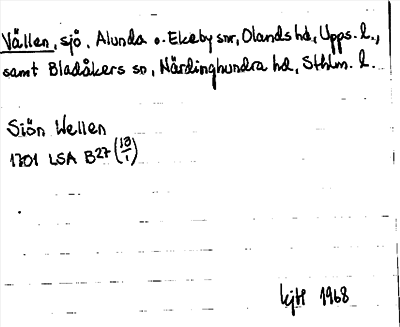 Vällen, sjö, Alunda o. Ekeby snr, Olands hd, Upps. l.,
samt Bladåkers sn, Närdinghundra hd, Sthlm. l.
Siön Wellen
1701 LSA B27 (13/1)
1968